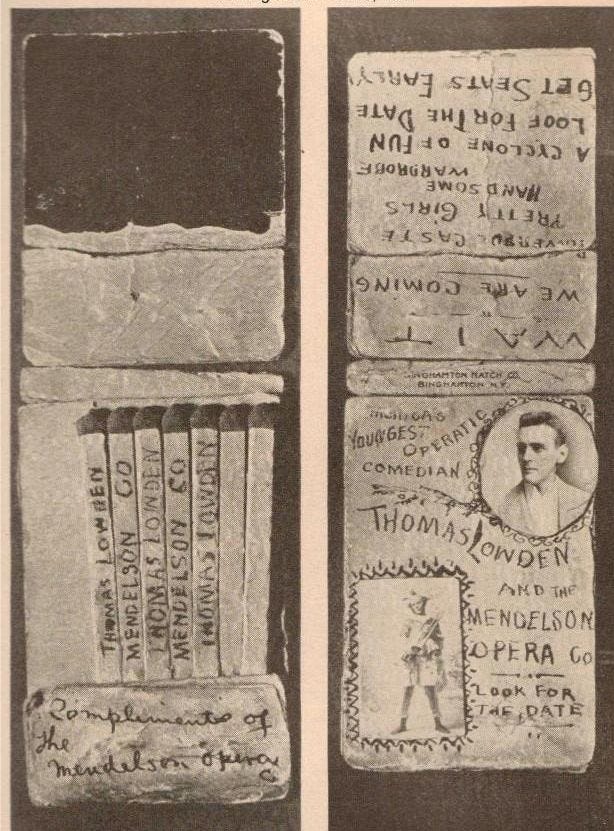 THOMAS LOWDEN
MENDELSON CO
THOMAS LOWDEN
MENDELSON CO
THOMAS LOWDEN
Compliments of
the
Mendelson Opera
Co
WAIT
WE ARE COMING
POWERFUL CASTE
PRETTY GIRLS
HANDSOME
WARDROBE
A CYCLONE OF FUN
LOOK FOR THE DATE
GET SEATS EARLY
BINGHAMTON MATCH CO.
BINGHAMTON N.Y.
AMERICA'S
YOUNGEST
OPERATIC
COMEDIAN
THOMAS LOWDEN
AND THE
MENDELSON
OPERA CO
LOOK FOR
THE DATE